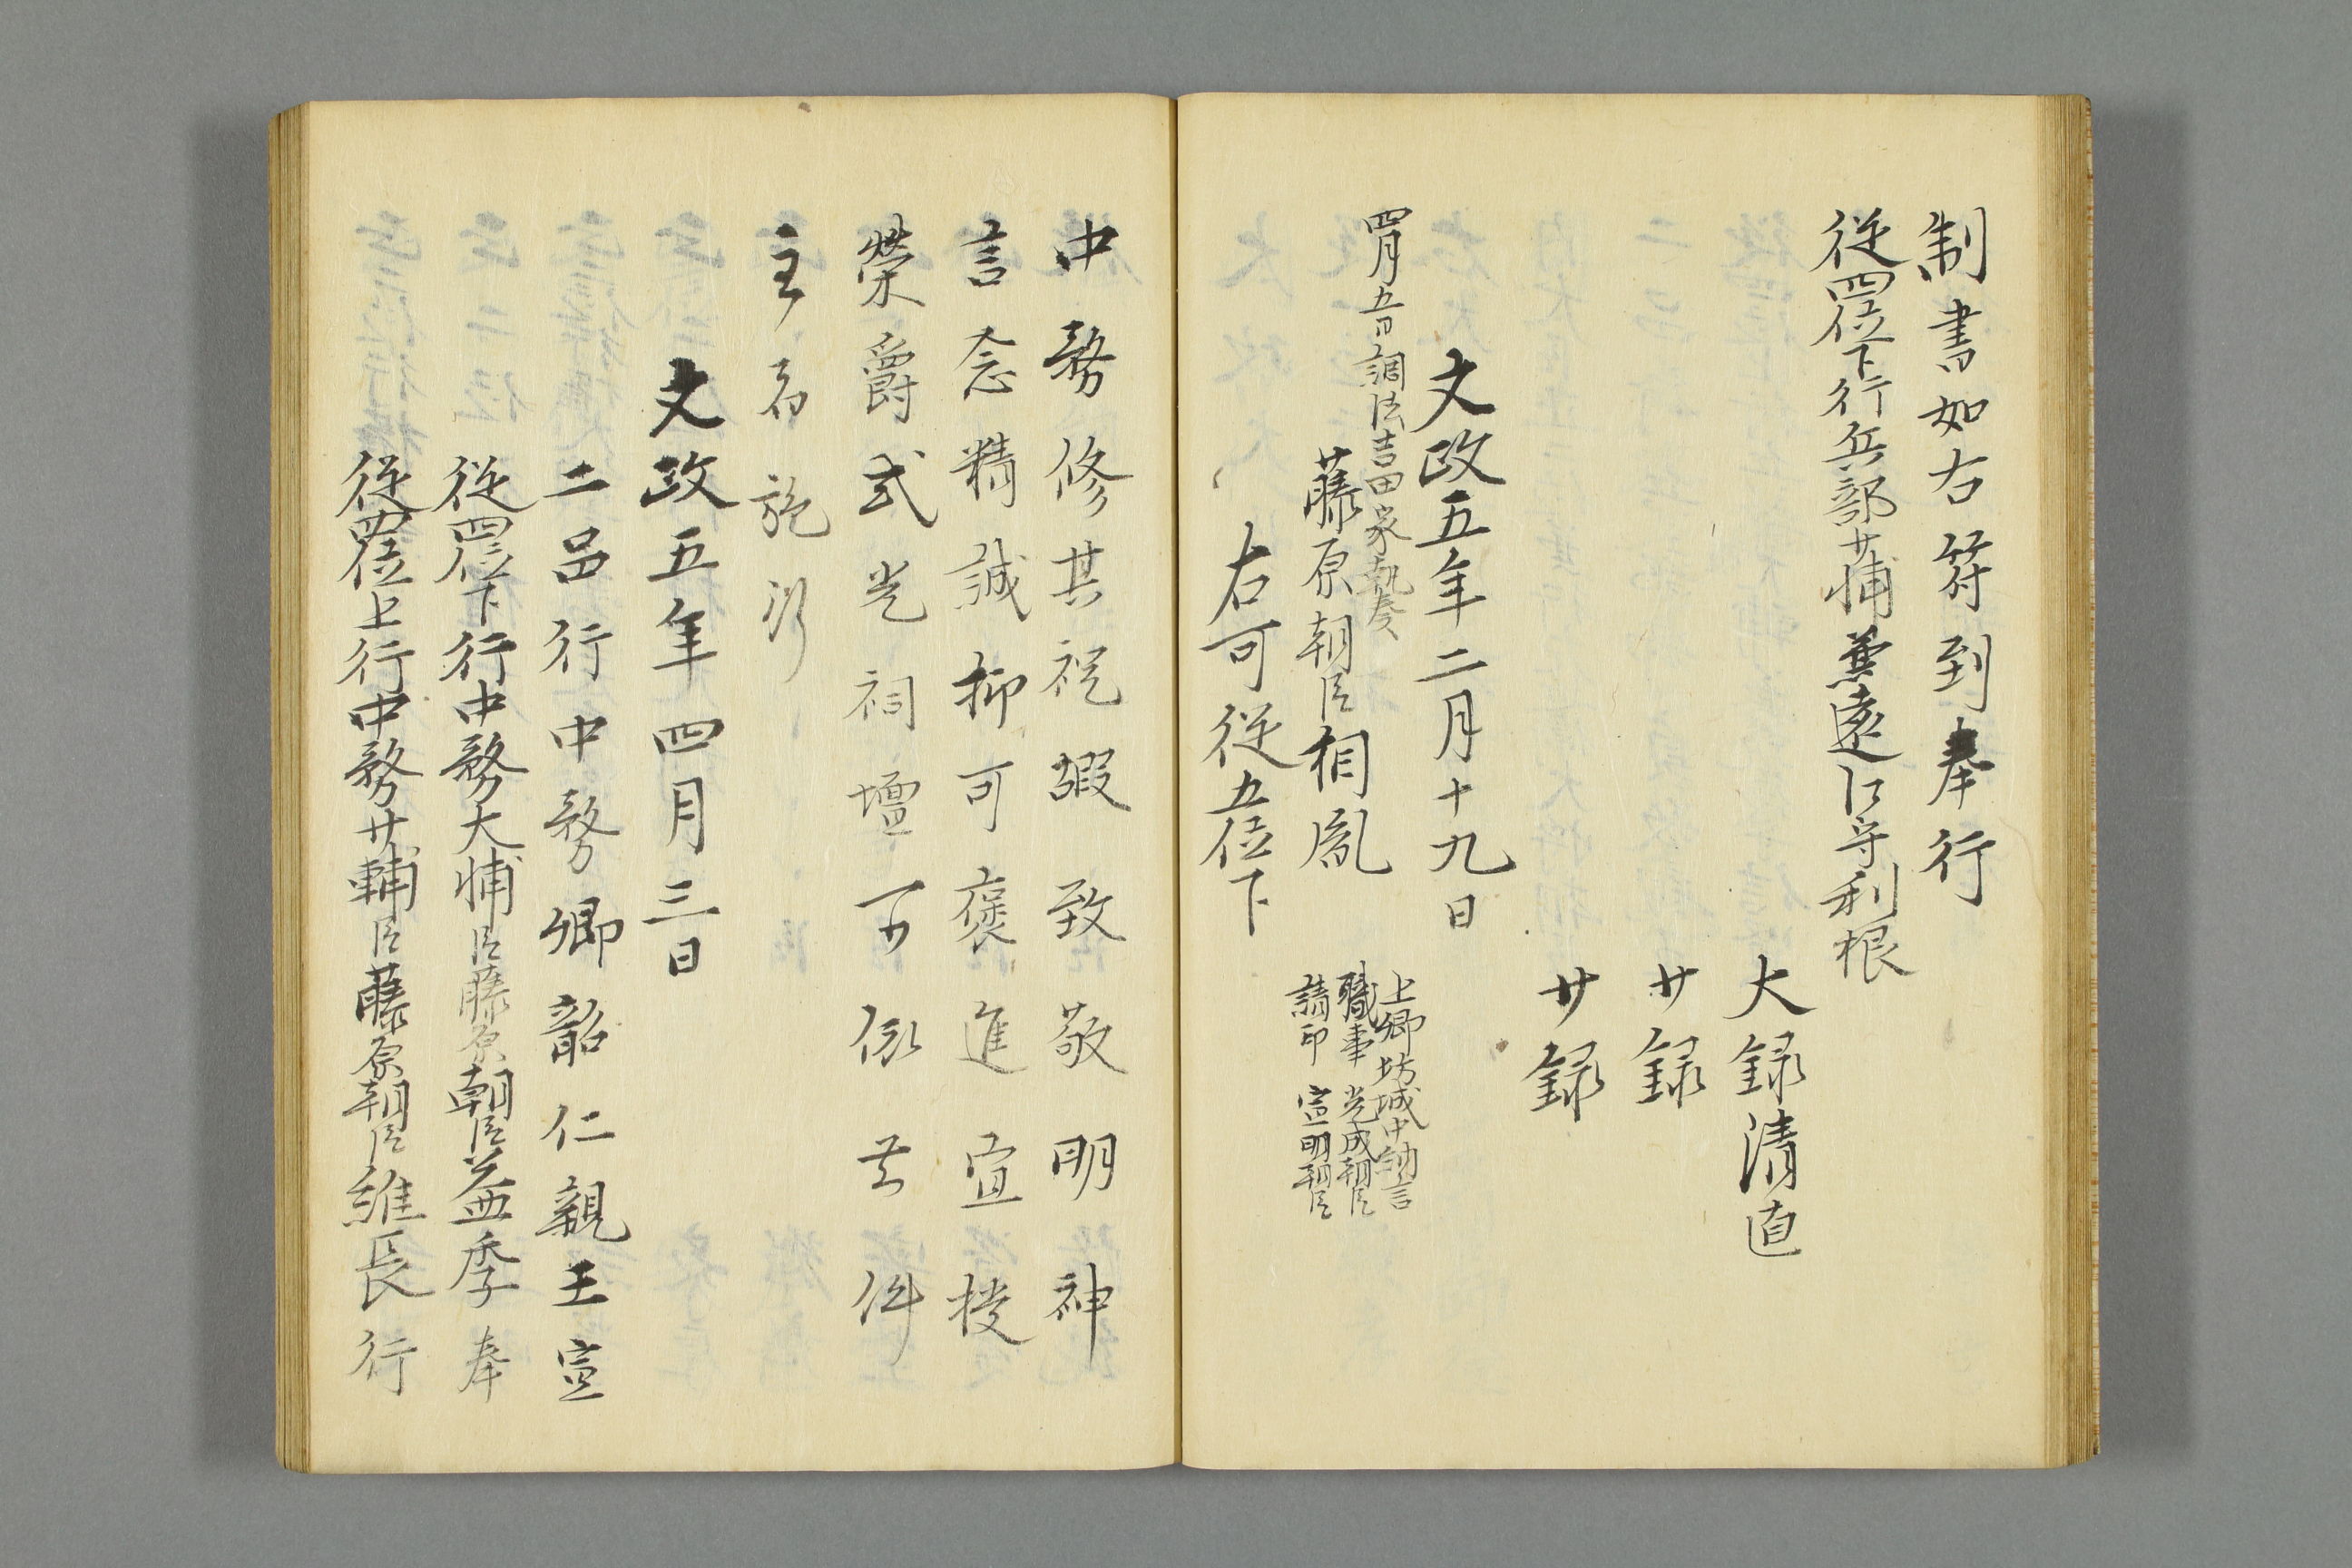 制書如右符到奉行
従四位下行兵部少輔兼遠江守利根
大録清直
少録
少録
文政五年二月十九日
四月五日 調法吉田家執奏
藤原朝臣相胤
右可従五位下
上卿坊城中納言
職事 光成朝臣
請印 宣明朝臣
中務修其祝嘏致敬明神
言念精誠抑可褒進宜授
榮爵式光祠壇可依前件
主者施行
文政五年四月三日
二品行中務卿韶仁親王宣
従四位下行中務大輔臣藤原朝臣益季奉
従四位上行中務少輔臣藤原朝臣維長行